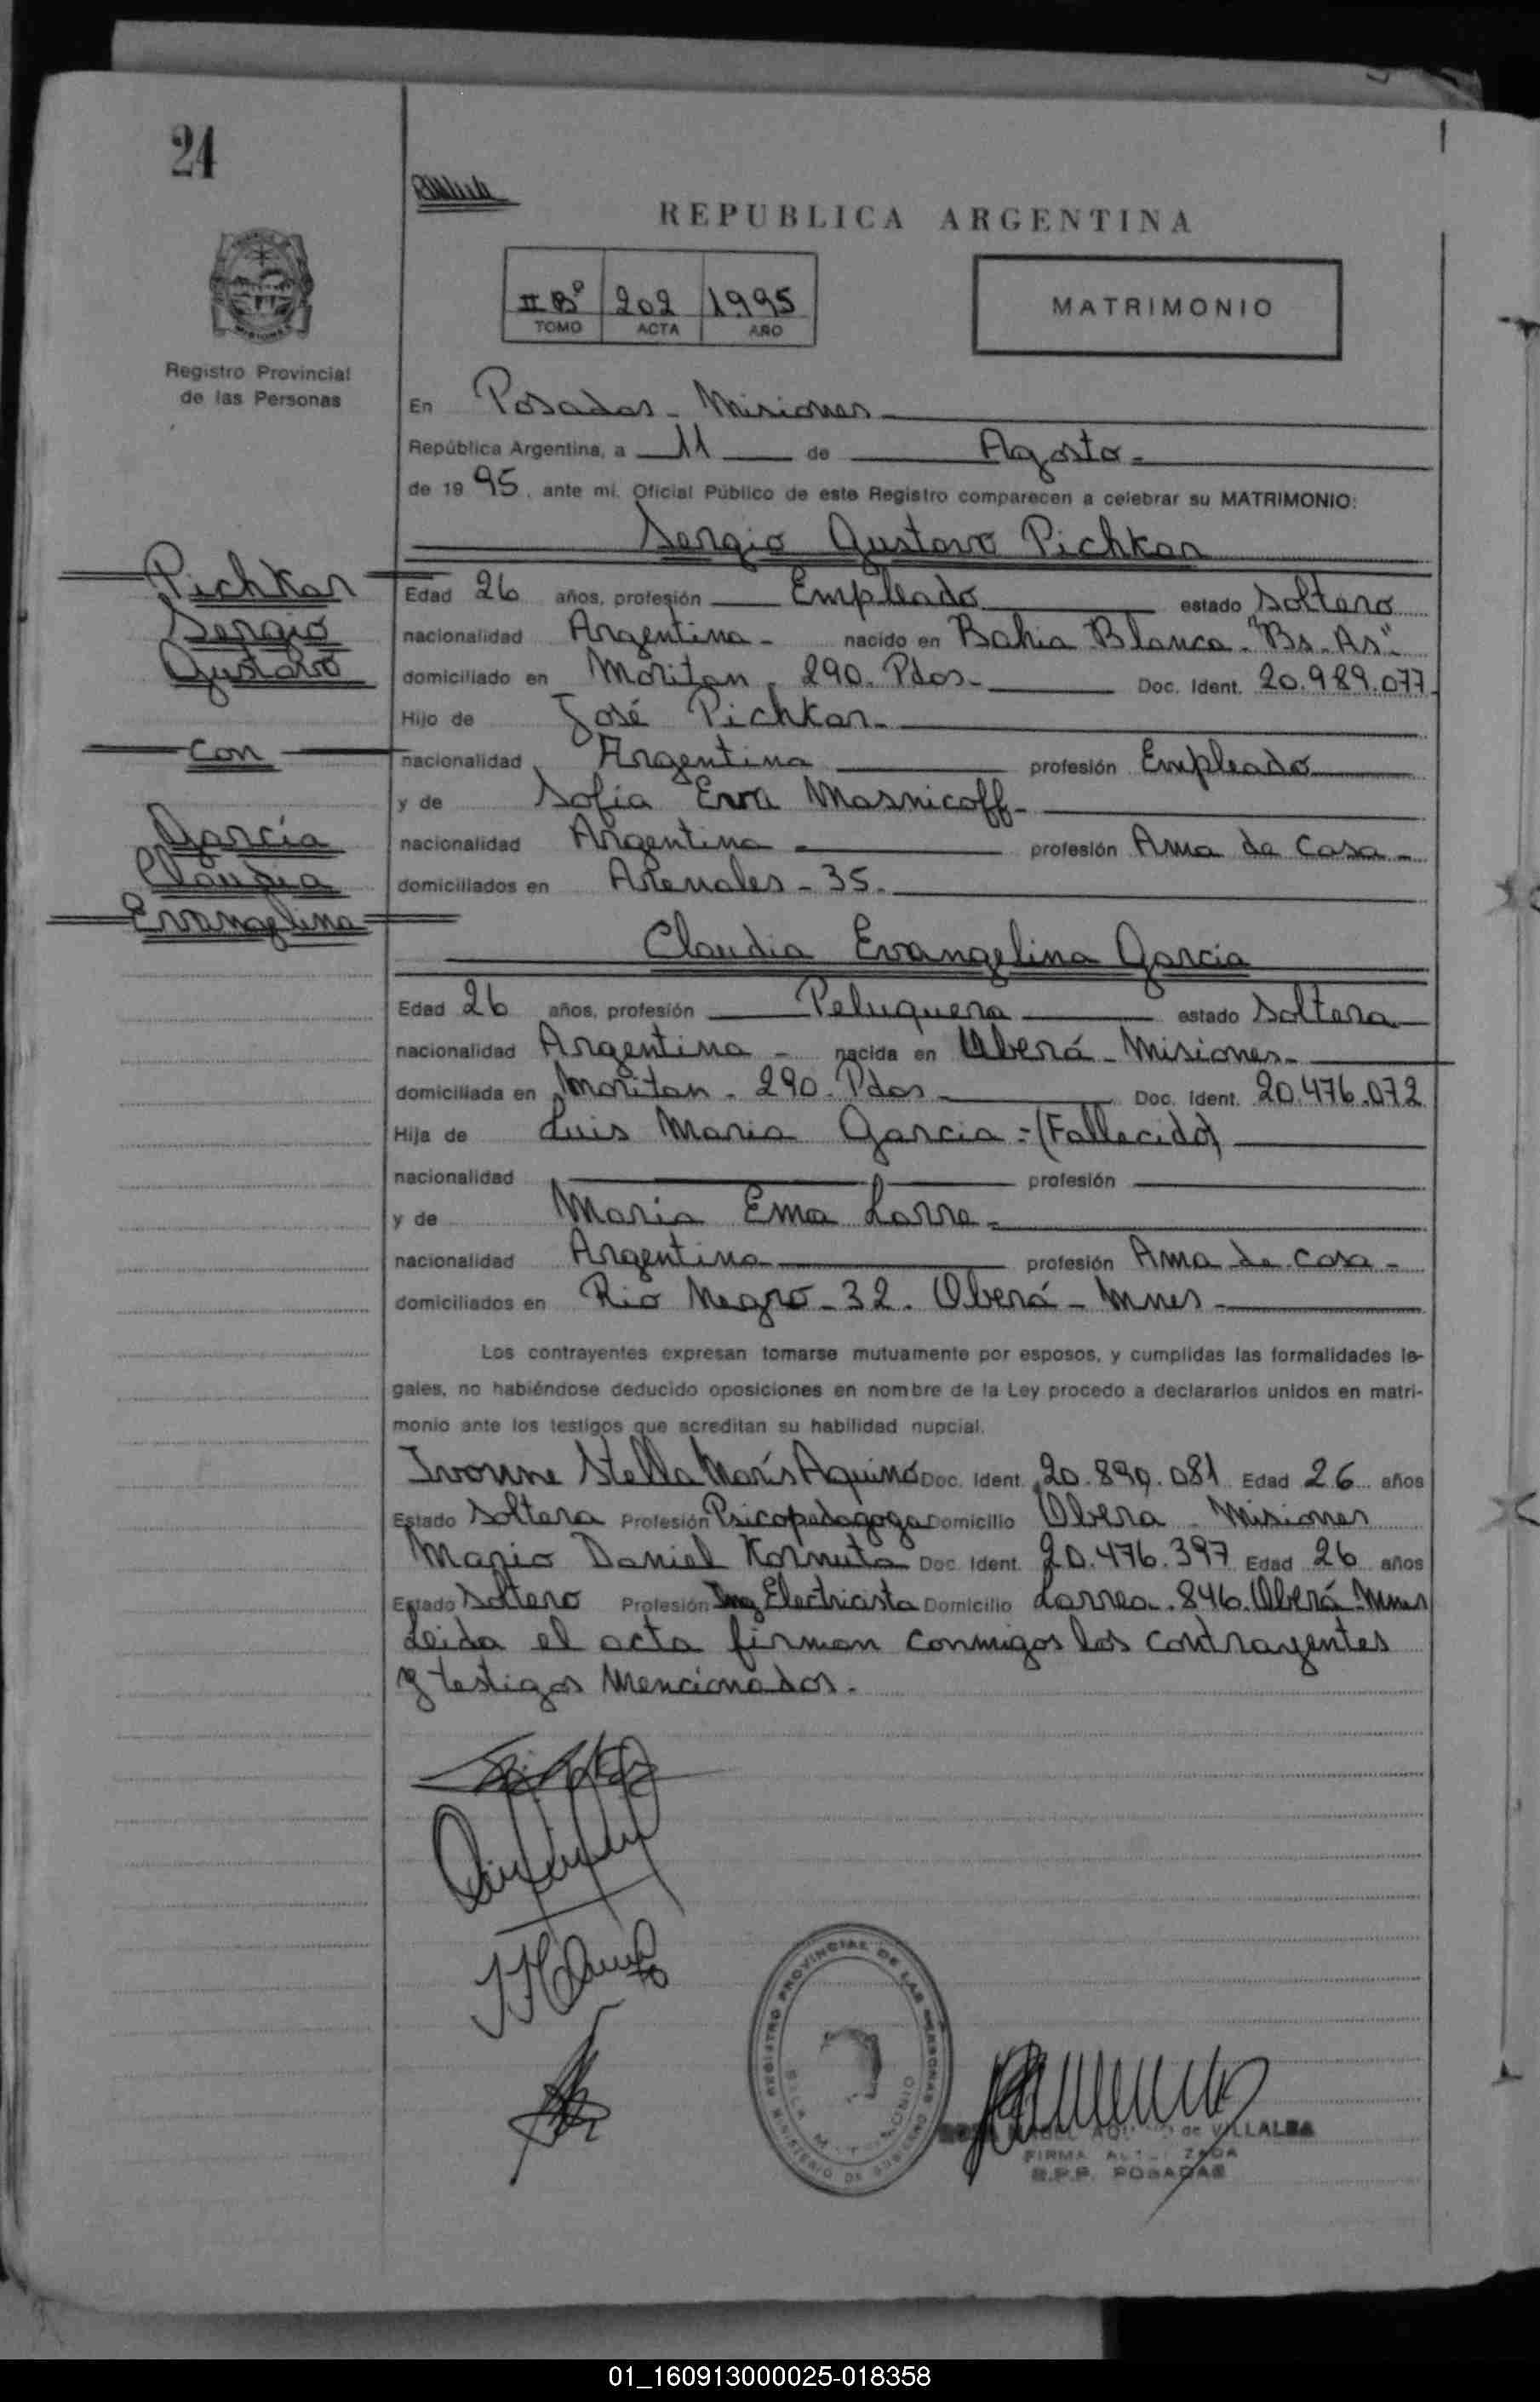 24
REPUBLICA ARGENTINA
II Bº 202 1995
TOMO ACTA AÑO
MATRIMONIO
Registro Provincial
de las Personas
En Posadas - Misiones
República Argentina, a 11 de Agosto -
de 1995, ante mí, Oficial Público de este Registro comparecen a celebrar su MATRIMONIO:
Sergio Gustavo Pichkar
Pichkar
Sergio
Gustavo
con
García
Claudia
Evangelina
Edad 26 años, profesión Empleado estado Soltero
nacionalidad Argentina - nacido en Bahia Blanca - "Bs. As"
domiciliado en Moritan - 290. Pdas - Doc. Ident. 20.989.077
Hijo de José Pichkar -
nacionalidad Argentina profesión Empleado
y de Sofia Eva Masnicoff -
nacionalidad Argentina profesión Ama de Casa -
domiciliados en Arenales - 35.
Claudia Evangelina García
Edad 26 años, profesión Peluquera estado Soltera
nacionalidad Argentina - nacida en Oberá - Misiones -
domiciliada en Moritan - 290. Pdas - Doc. Ident. 20.476.072
Hija de Luis Maria Garcia - (Fallecido)
nacionalidad profesión
y de Maria Ema Larre -
nacionalidad Argentina profesión Ama de casa -
domiciliados en Rio Negro - 32. Oberá - Mnes -
Los contrayentes expresan tomarse mutuamente por esposos, y cumplidas las formalidades le-
gales, no habiéndose deducido oposiciones en nombre de la Ley procedo a declararlos unidos en matri-
monio ante los testigos que acreditan su habilidad nupcial.
Ivonne Stella Maris Aquino Doc. Ident. 20.890.081 Edad 26 años
Estado Soltera Profesión Psicopedagoga Domicilio Obera - Misiones
Mario Daniel Kornuta Doc. Ident. 20.476.397 Edad 26 años
Estado Soltero Profesión Ing Electricista Domicilio Larrea. 846. Oberá - Mnes
Leida el acta firman conmigos los contrayentes
y testigos mencionados.
REGISTRO PROVINCIAL DE LAS PERSONAS
MINISTERIO DE GOBIERNO
SALA MATRIMONIO
de VILLALBA
FIRMA AUTORIZADA
R.P.P. POSADAS
01_160913000025-018358